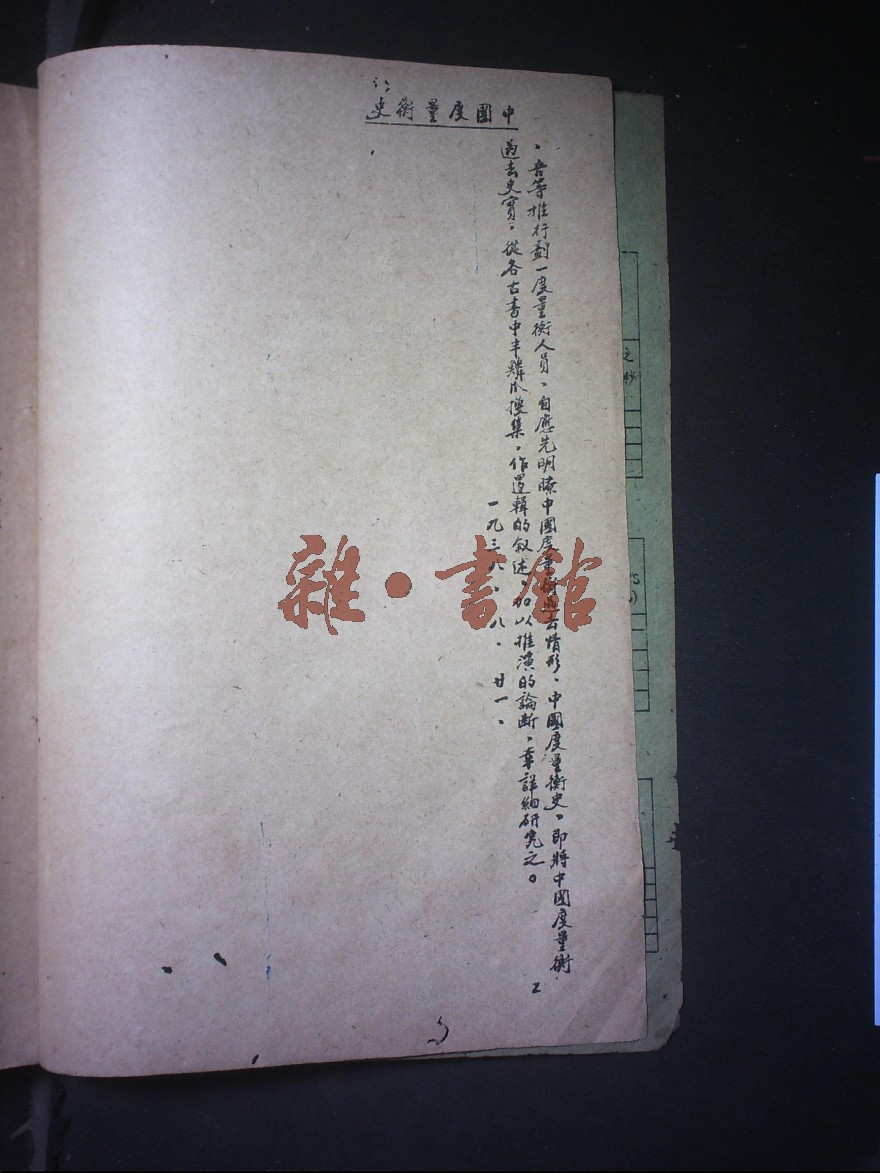 中國度量衡史
吾等推行劃一度量衡人員、自應先明瞭中國度量衡過去情形、中國度量衡史、即將中國度量衡
過去史實、從各古書中半鱗爪搜集、作邏輯的叙述、加以推演的論斷、幸詳細研究之。
一九三八、八、廿一、
雜·書館